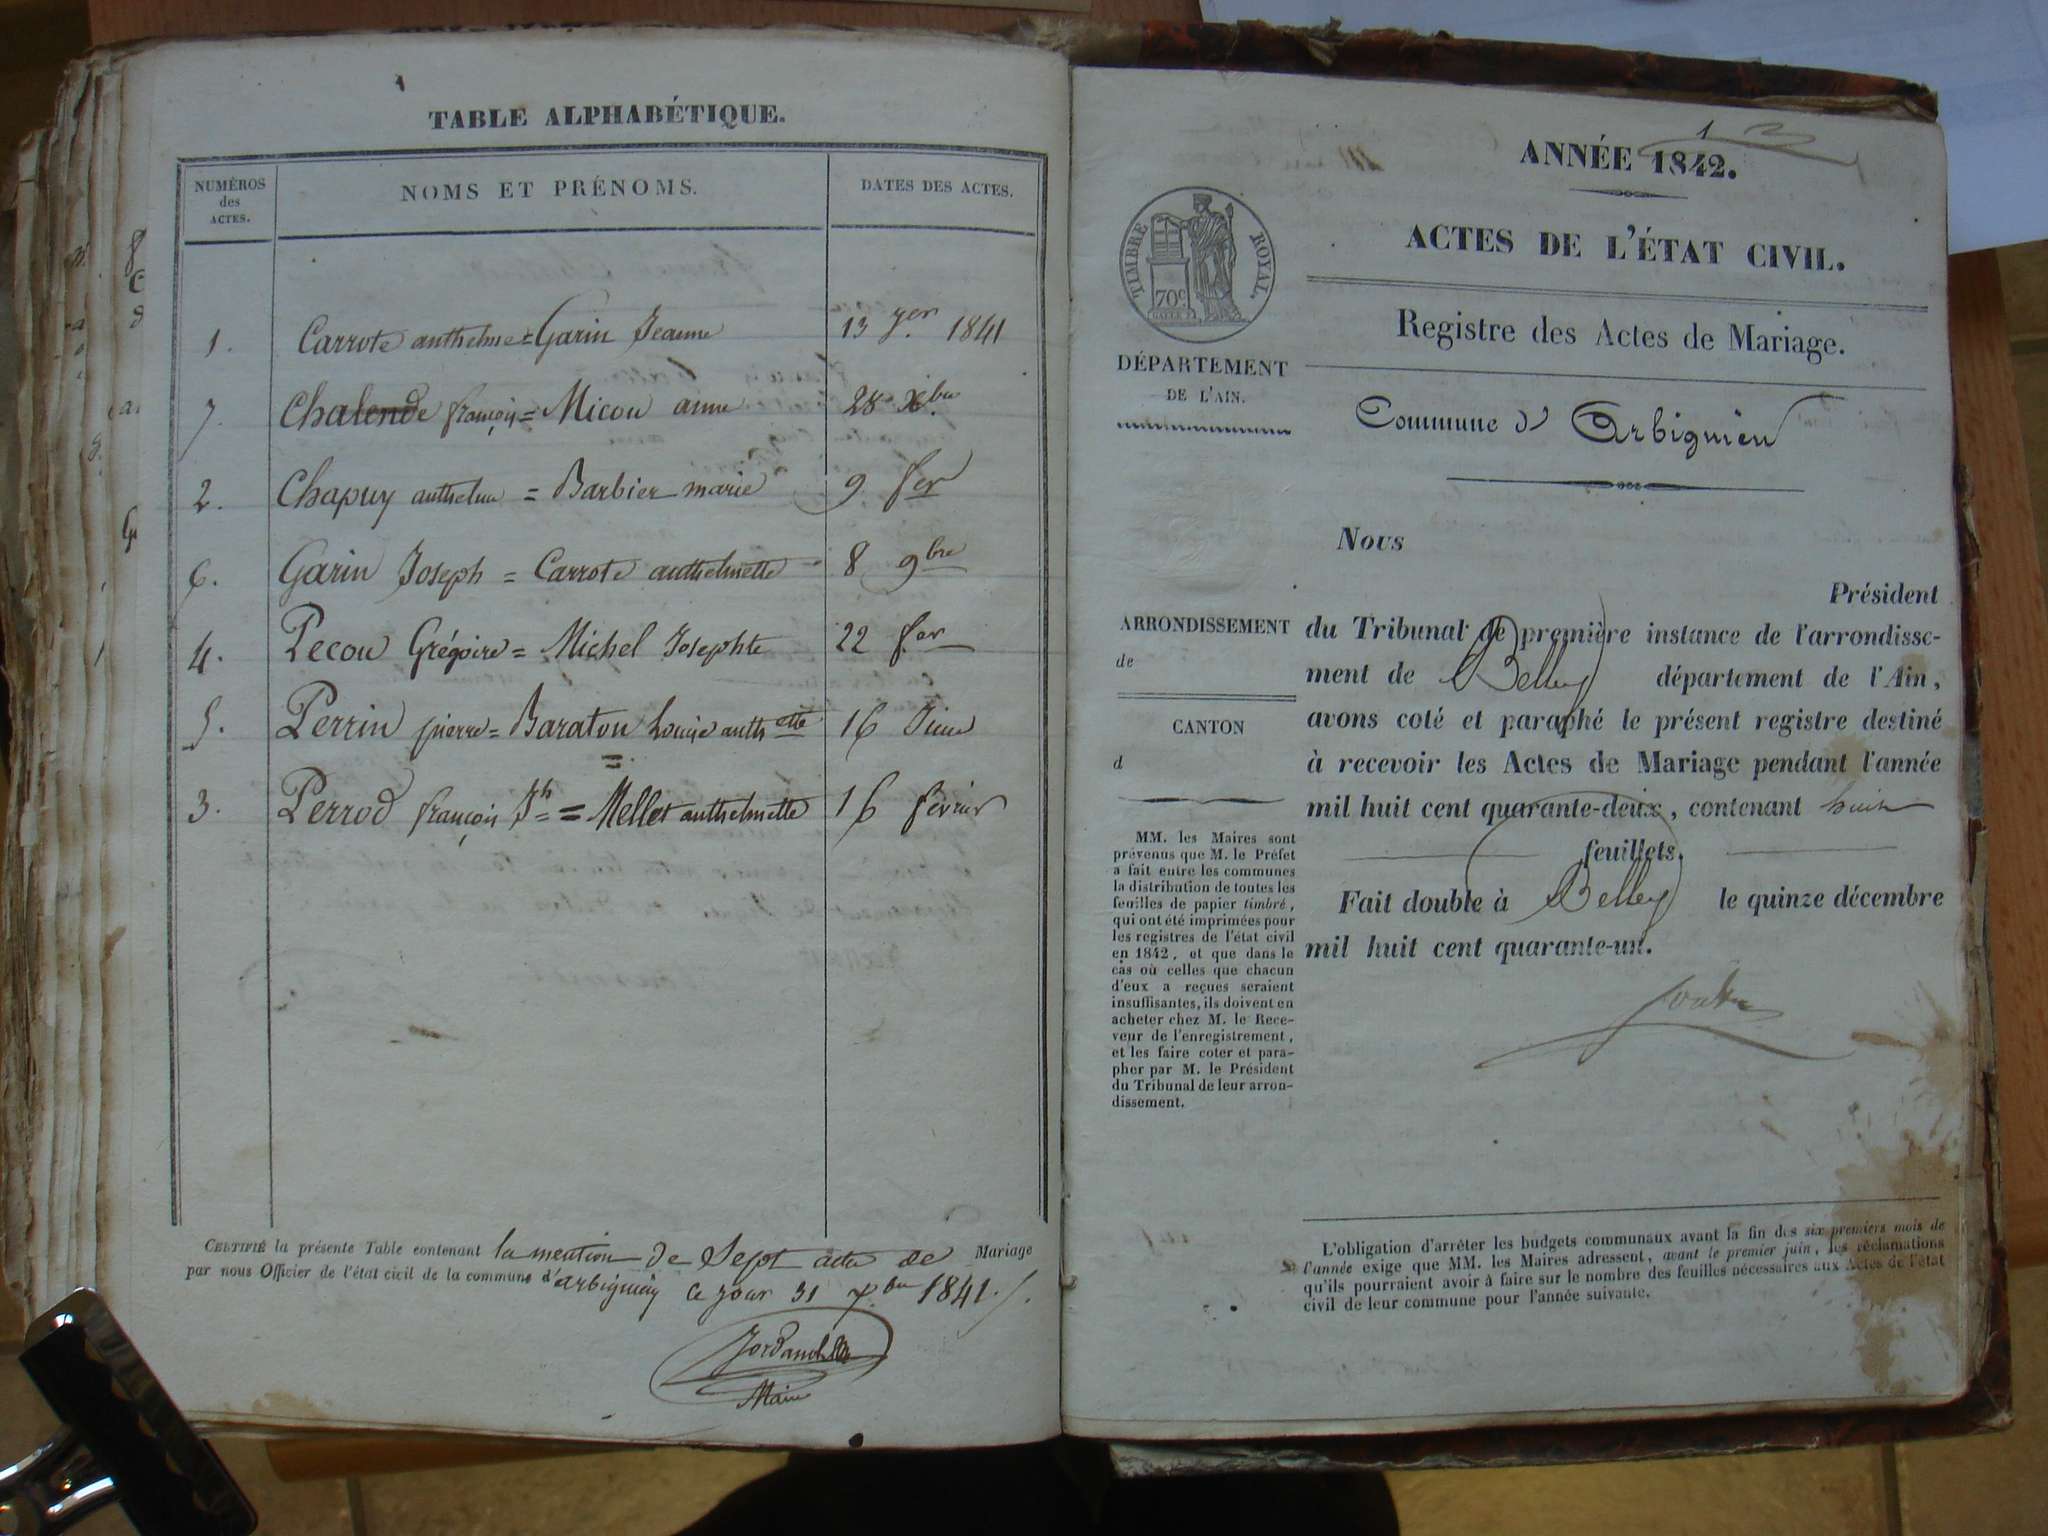 TABLE ALPHABÉTIQUE.
NUMÉROS des ACTES.
NOMS ET PRÉNOMS.
DATES DES ACTES.
1. Carrote anthelme = Garin Jeanne 13 yer. 1841
7. Chalende françois = Micou anne 28 Xbre
2. Chapuy anthelme = Barbier marie 9 fer
6. Garin Joseph = Carrote anthelmette 8 9bre
4. Pecou Grégoire = Michel Josephte 22 fer
5. Perrin pierre = Baraton Louise anthette 16 Juin
=
3. Perrod françois Jh = Mellet anthelmette 16 fevrier
CERTIFIÉ la présente Table contenant la mention de Sept actes de Mariage
par nous Officier de l'état civil de la commune d'arbignieu ce jour 31 Xbre 1841.
Maire
1
ANNÉE 1842.
ACTES DE L'ÉTAT CIVIL.
Registre des Actes de Mariage.
Commune d'Arbignieu
TIMBRE ROYAL.
70c
DÉPARTEMENT
DE L'AIN.
ARRONDISSEMENT
de
CANTON
d
MM. les Maires sont
prévenus que M. le Préfet
a fait entre les communes
la distribution de toutes les
feuilles de papier timbré,
qui ont été imprimées pour
les registres de l'état civil
en 1842, et que dans le
cas où celles que chacun
d'eux a reçues seraient
insuffisantes, ils doivent en
acheter chez M. le Rece-
veur de l'enregistrement,
et les faire coter et para-
pher par M. le Président
du Tribunal de leur arron-
dissement.
Nous
Président
du Tribunal de première instance de l'arrondisse-
ment de Belley département de l'Ain,
avons coté et paraphé le présent registre destiné
à recevoir les Actes de Mariage pendant l'année
mil huit cent quarante-deux, contenant huit
feuillets.
Fait double à Belley le quinze décembre
mil huit cent quarante-un.
L'obligation d'arrêter les budgets communaux avant la fin des six premiers mois de
l'année exige que MM. les Maires adressent, avant le premier juin, les réclamations
qu'ils pourraient avoir à faire sur le nombre des feuilles nécessaires aux Actes de l'état
civil de leur commune pour l'année suivante.